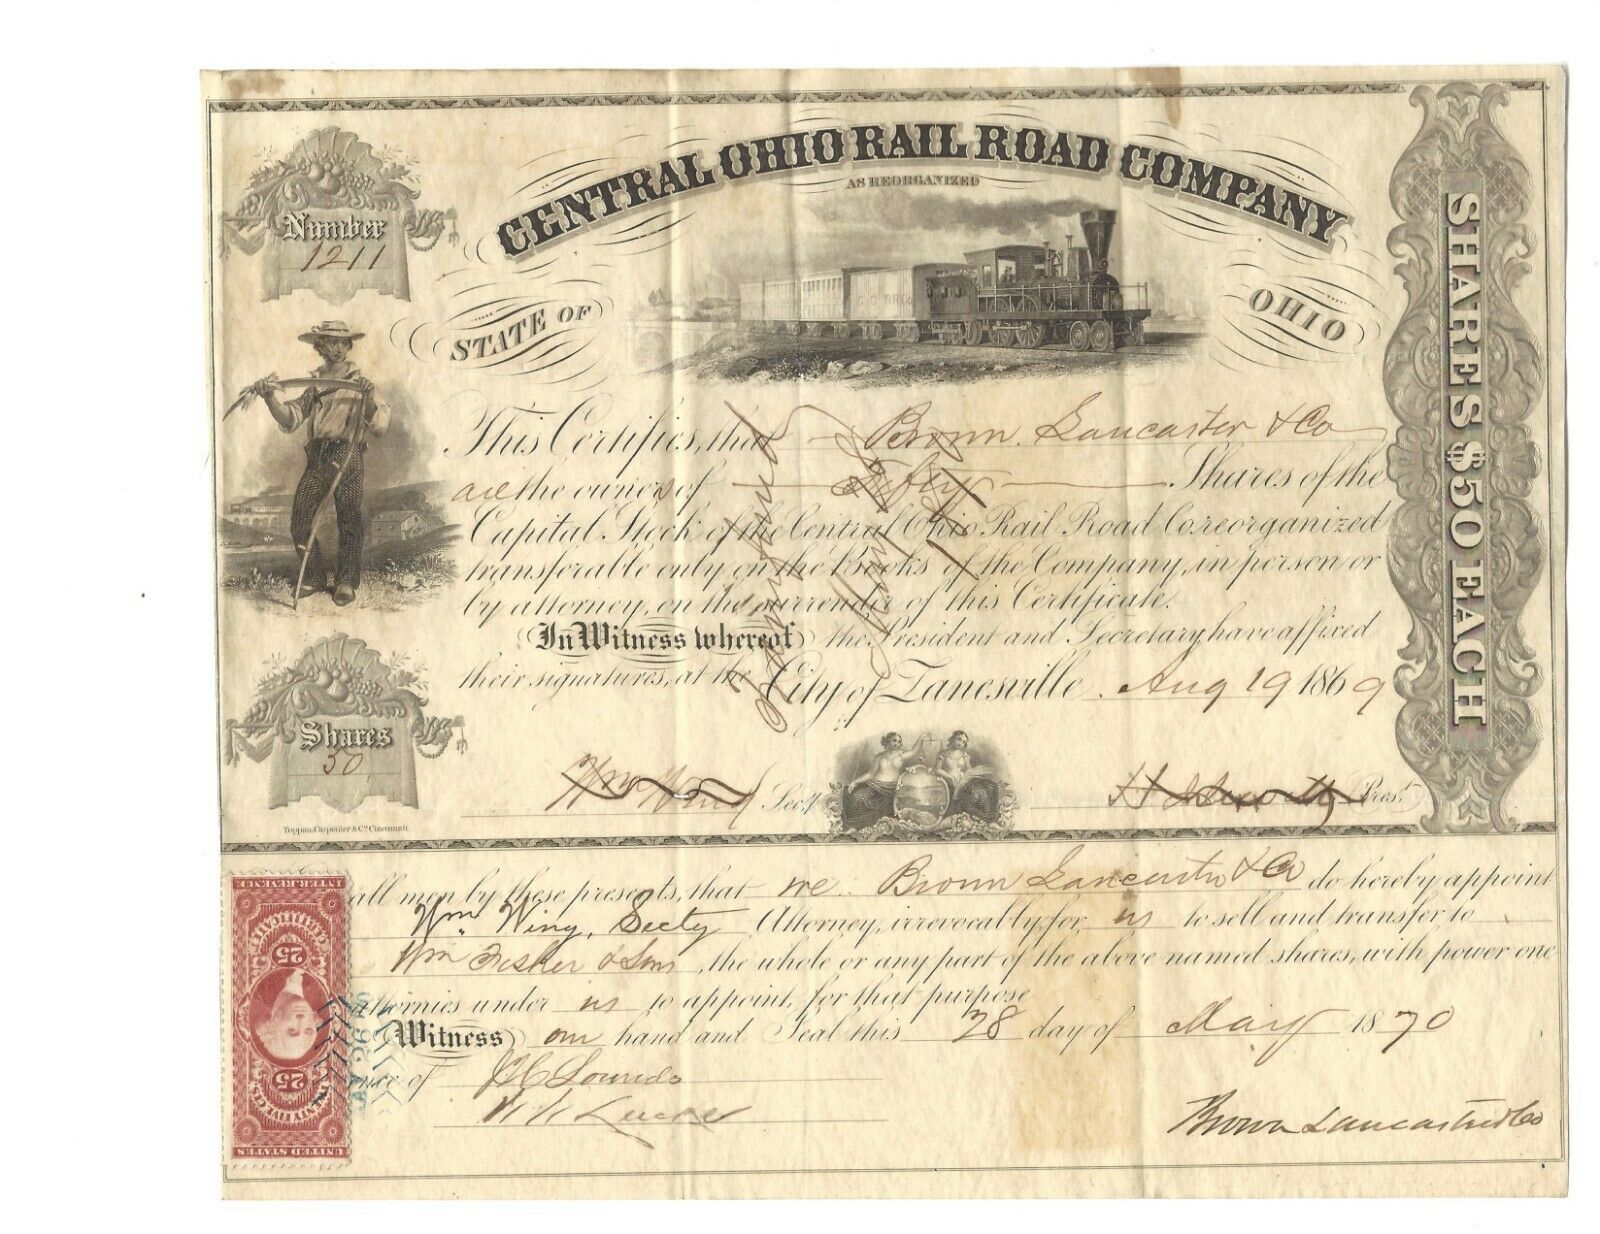 CENTRAL OHIO RAIL ROAD COMPANY
AS REORGANIZED
Number
1211
STATE OF
OHIO
C.O.RR.Co
SHARES $50 EACH
This Certifies, that Brown Lancaster & Co
are the owners of Fifty Shares of the
Capital Stock of the Central Ohio Rail Road Co. reorganized
transferable only on the Books of the Company, in person or
by attorney, on the surrender of this Certificate.
In Witness whereof the President and Secretary, have affixed
their signatures, at the City of Zanesville Aug 19 1869
Transferred
Shares
50
Wm Wing Secy
Prest
Toppan, Carpenter & Co. Cincinnati.
all men by these presents, that we Brown Lancaster & Co do hereby appoint
Wm. Wing, Secty Attorney, irrevocably, for us to sell and transfer to
Wm Fisher & Sons, the whole or any part of the above named shares, with power one
attornies under us to appoint, for that purpose
Witness our hand and Seal this 28 day of May 1870
of
Brown Lancaster & Co
INTER. REVENUE
CERTIFICATE
25
25
TWENTY FIVE CTS
UNITED STATES